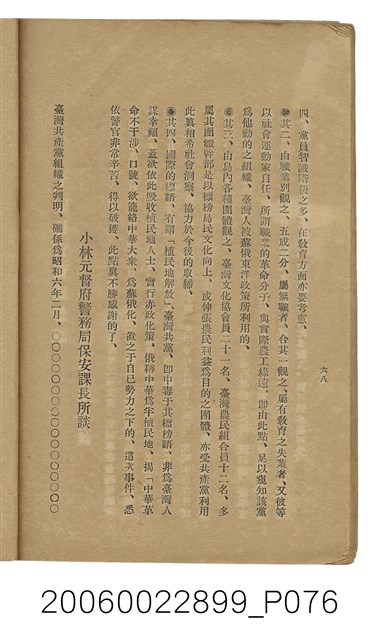 六八
四、黨員智識階級之多、在教育方面亦要考慮、
◉其二、由職業別觀之、五成二分、屬無職者、合其一觀之、屬有教育之失業者、又彼等
以社會運動家自任、所謂職業的革命分子、與實際農工綠遠、即由此點、足以窺知該黨
為他動的之組織、臺灣人被蘇俄東洋政策所利用的、
◉其三、由島內各種團體觀之、臺灣文化協會員二十一名、臺灣農民組合員十二名、多
屬其團體幹部是以標榜島民文化向上、或伸張農民利益為目的之團體、亦受共產黨利用
此眞相希社會洞察、協力於今後的取締、
◉其四、國際的標語、有謂「植民地解放」臺灣共黨、卽中毒于其標榜語、非爲臺灣人
謀幸福、蓋欲依此吸收植民地人士、實行赤政化策、俄稱中華爲半植民地、揭「中華革
命不干涉」口號、欲籠絡中華大衆、爲蘇俄化、置之于自已勢力之下的、這次事件、悉
依警官非常辛苦、得以破獲、此點眞不勝感謝的了、
小林元督府警務局保安課長所談
臺灣共產黨組織之判明、確係爲昭和六年二月、〇〇〇〇〇〇〇〇〇〇〇〇〇
20060022899_P076